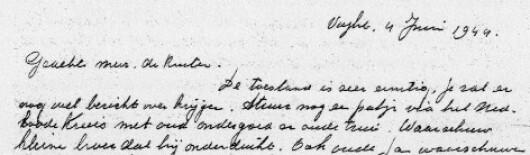 Vught. 4 Juni 1944.
Geachte mevr. de Ruiter.
De toestand is zeer ernstig, je zal er
nog wel bericht over krijgen. Stuur nog een pakje via het Ned.
Roode Kruis met oud ondergoed en oude trui. Waarschuw
kleine broer dat hij onderduikt. Ook oude Jan waarschuwen